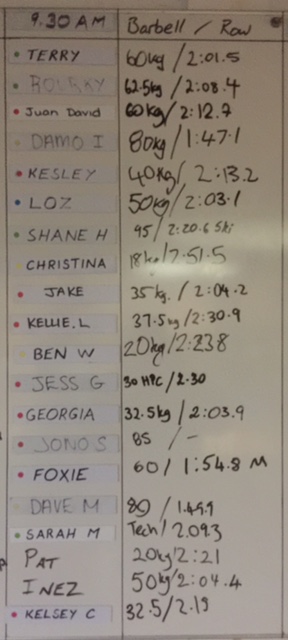 9.30 AM Barbell / Row
TERRY 60kg / 2:01.5
62.5kg / 2:08.4
Juan David 60kg / 2:12.7
DAMO I 80kg / 1:47.1
KESLEY 40kg / 2:13.2
LOZ 50kg / 2:03.1
SHANE H 95 / 2:20.6 Ski
CHRISTINA 18kg / 2:51.5
JAKE 35kg. / 2:04.2
KELLIE.L 37.5kg / 2:30.9
BEN W 20kg / 2:238
JESS G 30 HPC / 2.30
GEORGIA 32.5kg / 2:03.9
JONO S 85 / -
FOXIE 60 / 1:54.8 M
DAVE M 80 / 1.49.9
SARAH M Tech / 2.09.3
PAT 20kg / 2:21
INEZ 50kg / 2:04.4
KELSEY C 32.5 / 2.19